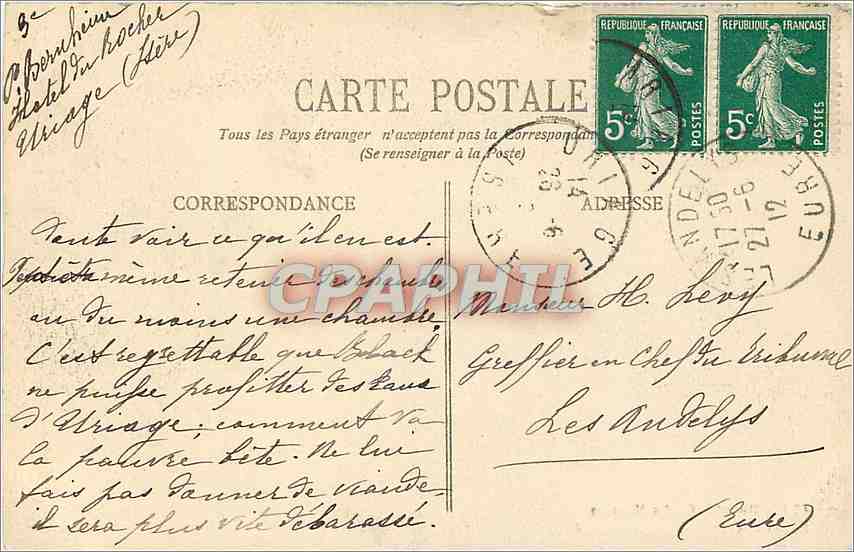 Bernheim
Hotel du Rocher
Uriage (Isère)
REPUBLIQUE FRANÇAISE
5c
POSTES
REPUBLIQUE FRANÇAISE
5c
POSTES
CARTE POSTALE
Tous les Pays étranger n'acceptent pas la Correspondan
(Se renseigner à la Poste)
CORRESPONDANCE
ADRESSE
URIAGE
ISERE
14
26 -6
ANDELYS
EURE
17 30
27 -6
12
CPAPHIL
doute voir ce qu'il en est.
même retenir des chambre
ou du moins une chambre.
C'est regrettable que
ne puisse profitter des Eaux
d'Uriage; comment va
la pauvre bête. Ne lui
fais pas donner de viande
il sera plus vite débarassé.
Monsieur H. Lévy
Greffier en Chef du Tribunal
Les Andelys
(Eure)